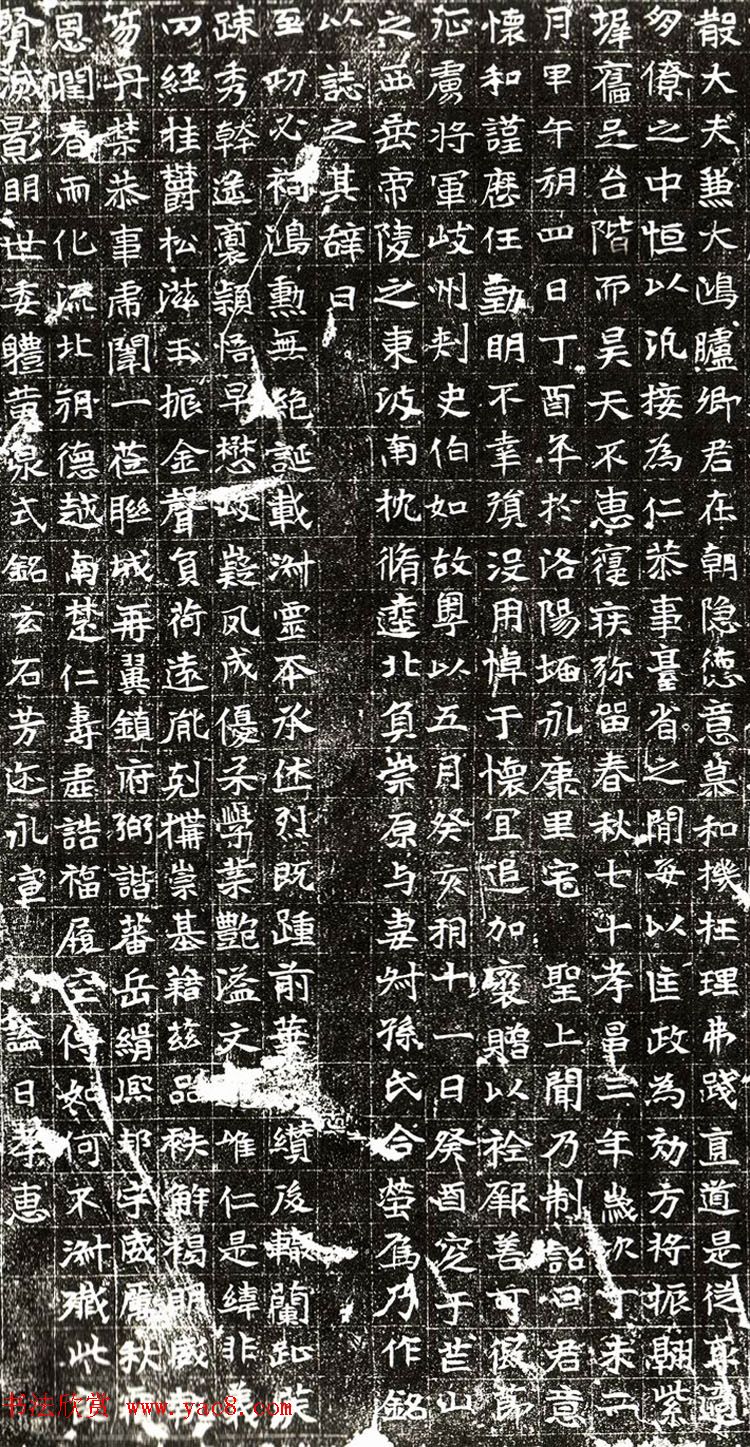 散大夫兼大鴻臚卿君在朝隐德意慕和撲枉理弗踐直道是従
僚之中恒以汎接為仁恭事臺省之閒每以匡政為効方将振翮紫
墀足台階而昊天不惠寢疾弥留春秋七十孝昌三年歲次丁未二
月甲午朔四日丁酉卒於洛陽城永康里宅 聖上聞乃制詔曰君意
懐和謹歷任勤明不幸殞没用悼于懐宜追加褒贈以衿厥善可假節
征虜将軍岐州刾史伯如故粤以五月癸亥朔十一日癸酉窆于芒山
之西帝陵之東坡南枕脩塗北負崇原与妻尉孫氏合塋焉乃作銘
以誌之其辭曰
至功必祠鴻勳無絶誕載渊靈丕承休烈既踵前華纘後轍蘭起叢
踈秀幹逸裏穎悟早懋岐嶷夙成優柔學業艷溢文唯仁是緯非義
四經桂欝松滋玉振金聲負荷遠胤剋構崇基籍茲品秩解褐明威
笏丹禁恭事帝闈一莅聯城再翼鎮府弼諧蕃岳緝熈邦宇威厲秋霜
恩潤春而化流北朔德越南楚仁壽虚誥福履空傳如何不渊殲此
賢滅影明世委軆黄泉式銘玄石芳迩永宣 謚曰孝恵
书法欣赏 www.yac8.com